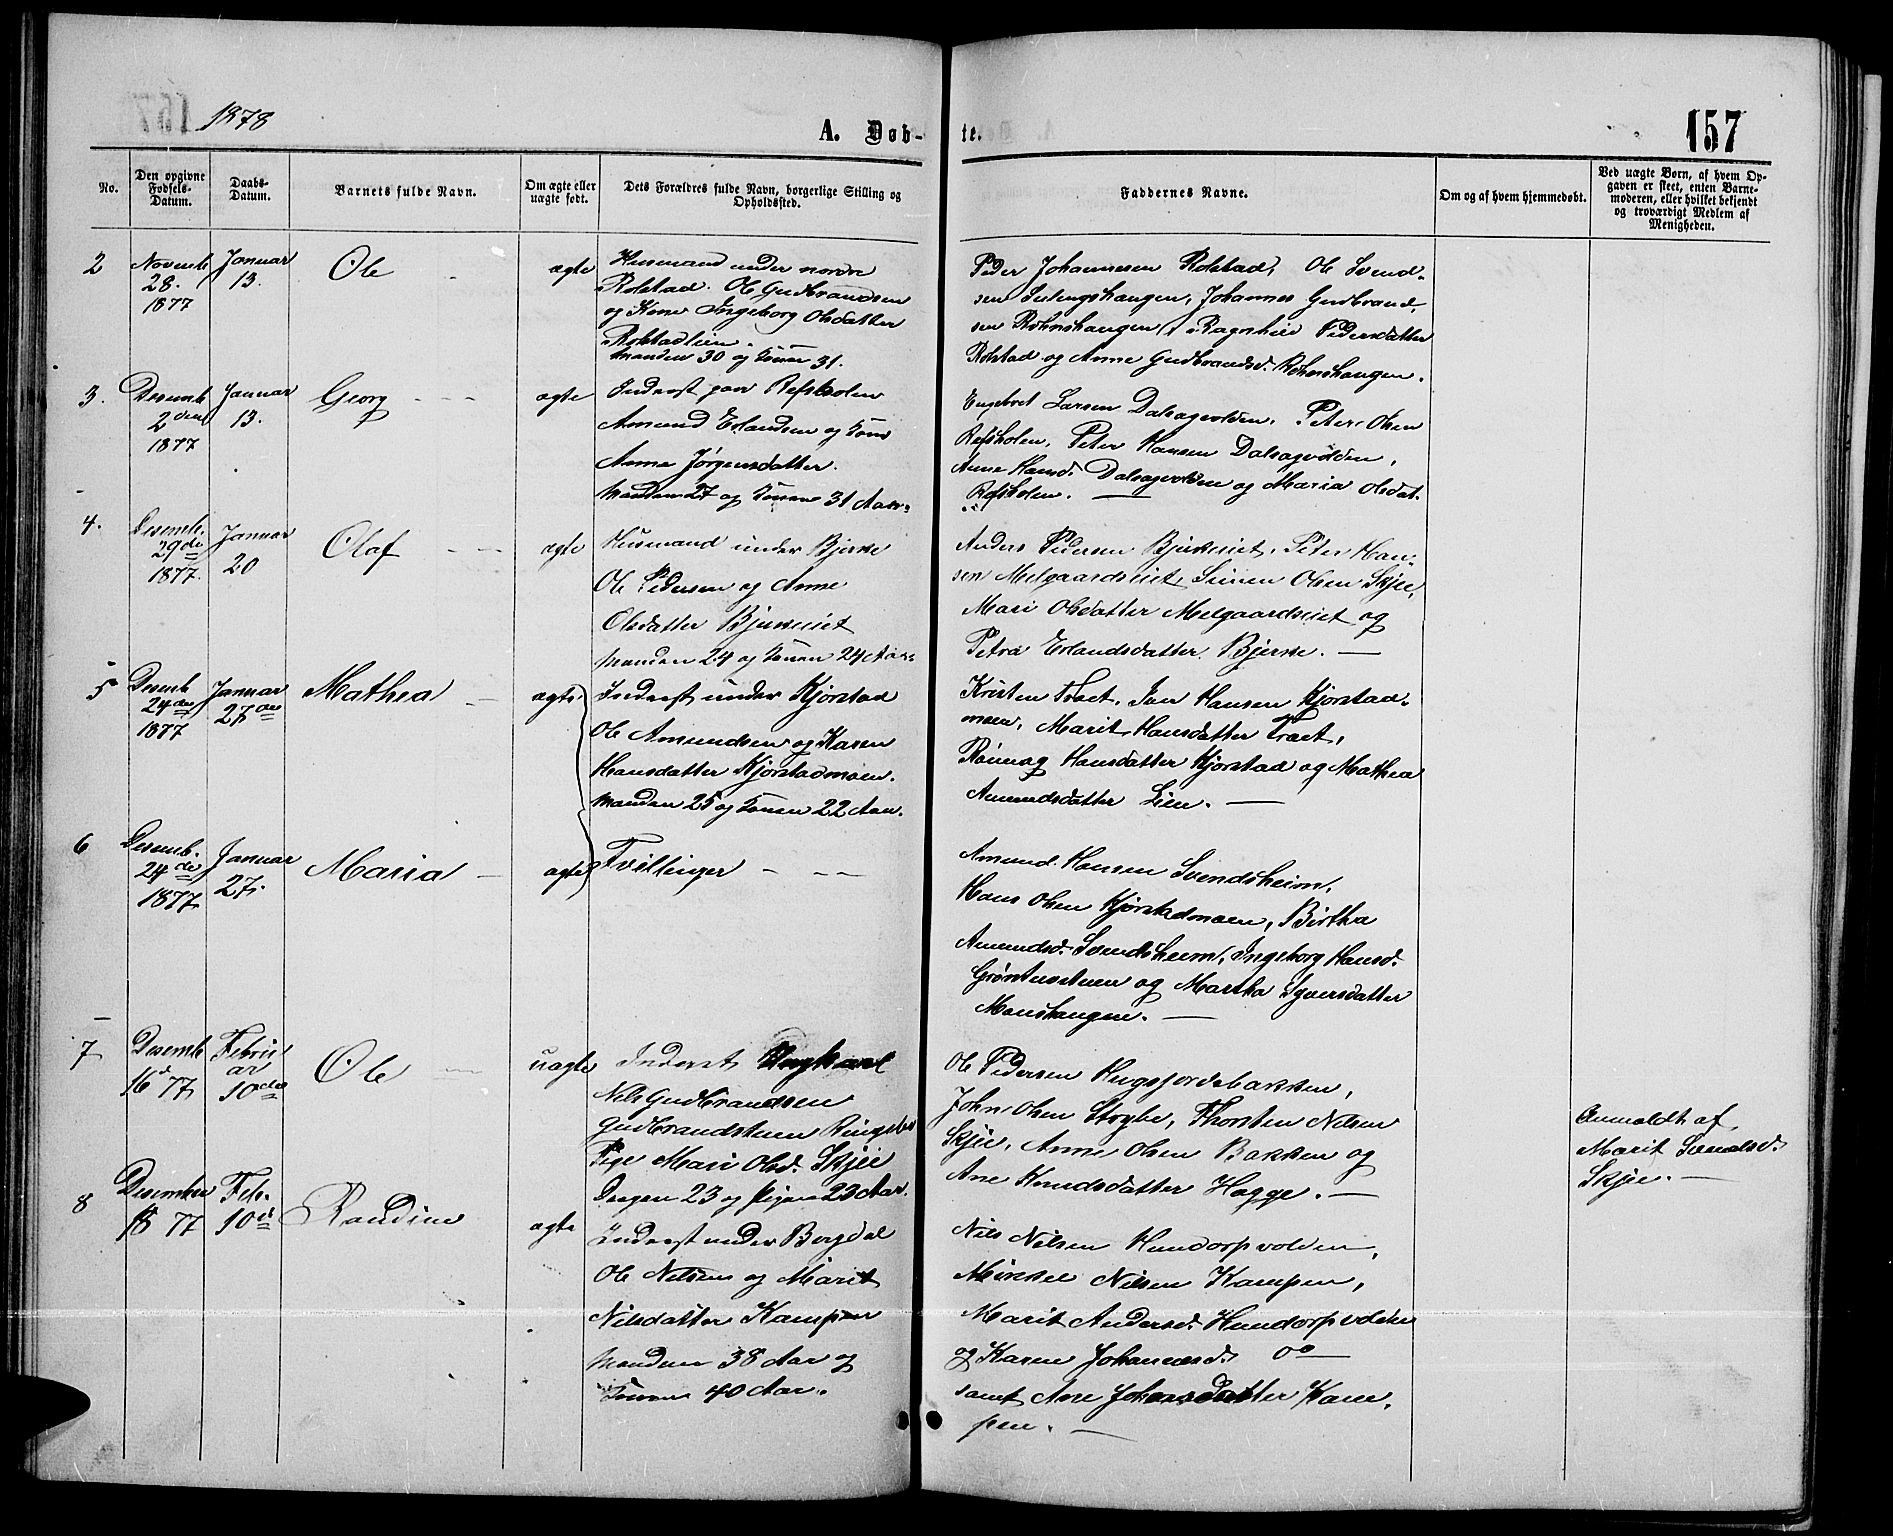 1878
A. Døb-
te.
157
No.
Den opgivne
Fødsels-
Datum.
Daabs-
Datum.
Barnets fulde Navn.
Om ægte eller
uægte født.
Dets Forældres fulde Navn, borgerlige Stilling og
Opholdssted.
Faddernes Navne.
Om og af hvem hjemmedøbt.
Ved uægte Børn, af hvem Op-
gaven er skeet, enten Barne-
moderen, eller hvilket bekjendt
og troværdigt Medlem af
Menigheden.
2
Novemb
28.
1877
Januar
13.
Ole
ægte
Husmand under nordre
Rolstad. Ole Gudbrandsen
og Kone Ingeborg Olsdatter
Rolstadlien.
Manden 30 og Konen 31.
Peder Johannesen Rolstad, Ole Svend-
sen Johannes Gudbrand-
sen Ragnhild Pedersdatter
Rolstad og Anne Gudbrandsd.
3.
Desemb
2den
1877
Januar
13.
Georg
ægte
Inderst paa Refsholen
Amund Erlandsen og Kone
Anne Jørgensdatter.
Manden 27 og Konen 31 Aar.
Engebret Larsen Dalsagvolden, Peter Olsen
Refsholen, Peter Hansen Dalsagvolden,
Anne Hansd. Dalsagvolden og Maria Olsdat.
Refsholen.
4.
Desemb.
29de
1877.
Januar
20
Olaf
ægte
Husmand under Bjerke
Ole Pedersen og Anne
Olsdatter Bjerkeeiet
Manden 24 og Konen 24 Aar.
Anders Pedersen Bjerkeeiet, Peter Han-
sen Melgaardseiet, Simen Olsen Skjee,
Mari Olsdatter Melgaardseiet og
Petra Erlandsdatter Bjerke.
5
Desemb
24de
1877
Januar
27de
Mathea
ægte
Inderst under Kjørstad
Ole Amundsen og Karen
Hansdatter Kjørstadmoen.
Manden 25 og Konen 22 Aar.
Kristen Traet, Jan Hansen Kjørstad-
moen, Marit Hansdatter Traet,
Rønnog Hansdatter Kjørstad og Mathea
Amundsdatter Lien.
6
Desemb.
24de
1877
Januar
27.
Maria
ægte
Tvillinger
Amund Hansen Svendsheim,
Hans Olsen Kjørstadmoen, Birtha
Amundsd. Svendsheim, Ingeborg Hansd.
Grøntuvstuen og Martha Syversdatter
Monshaugen.
7
Desemb
16d 77
Febru
ar
10de
Ole
uægte
Inderst Ungkarl
Nils Gudbrandsen
Gudbrandstuen Ringebu
Pige Mari Olsd. Skjee
Drengen 23 og Pigen 23 Aar.
Ole Pedersen
John Olsen Thorsten Nilsen
Skjee, Anne Olsen Bakken og
Ane Knudsdatter Hagge.
Anmeldt af
Marit
Skjee.
8
Desember
18 77
Feb.
10d
Randine
ægte
Inderst under Bergdal
Ole Nilsen og Marit
Nilsdatter Kampen
Manden 38 Aar og
Konen 40 Aar.
Nils Nilsen Hundorpvolden,
Mikkel Nilsen Kampen,
Marit Andersd. Hundorpvolden
og Karen Johannesd. do
samt Ane Johansdatter Kam-
pen.